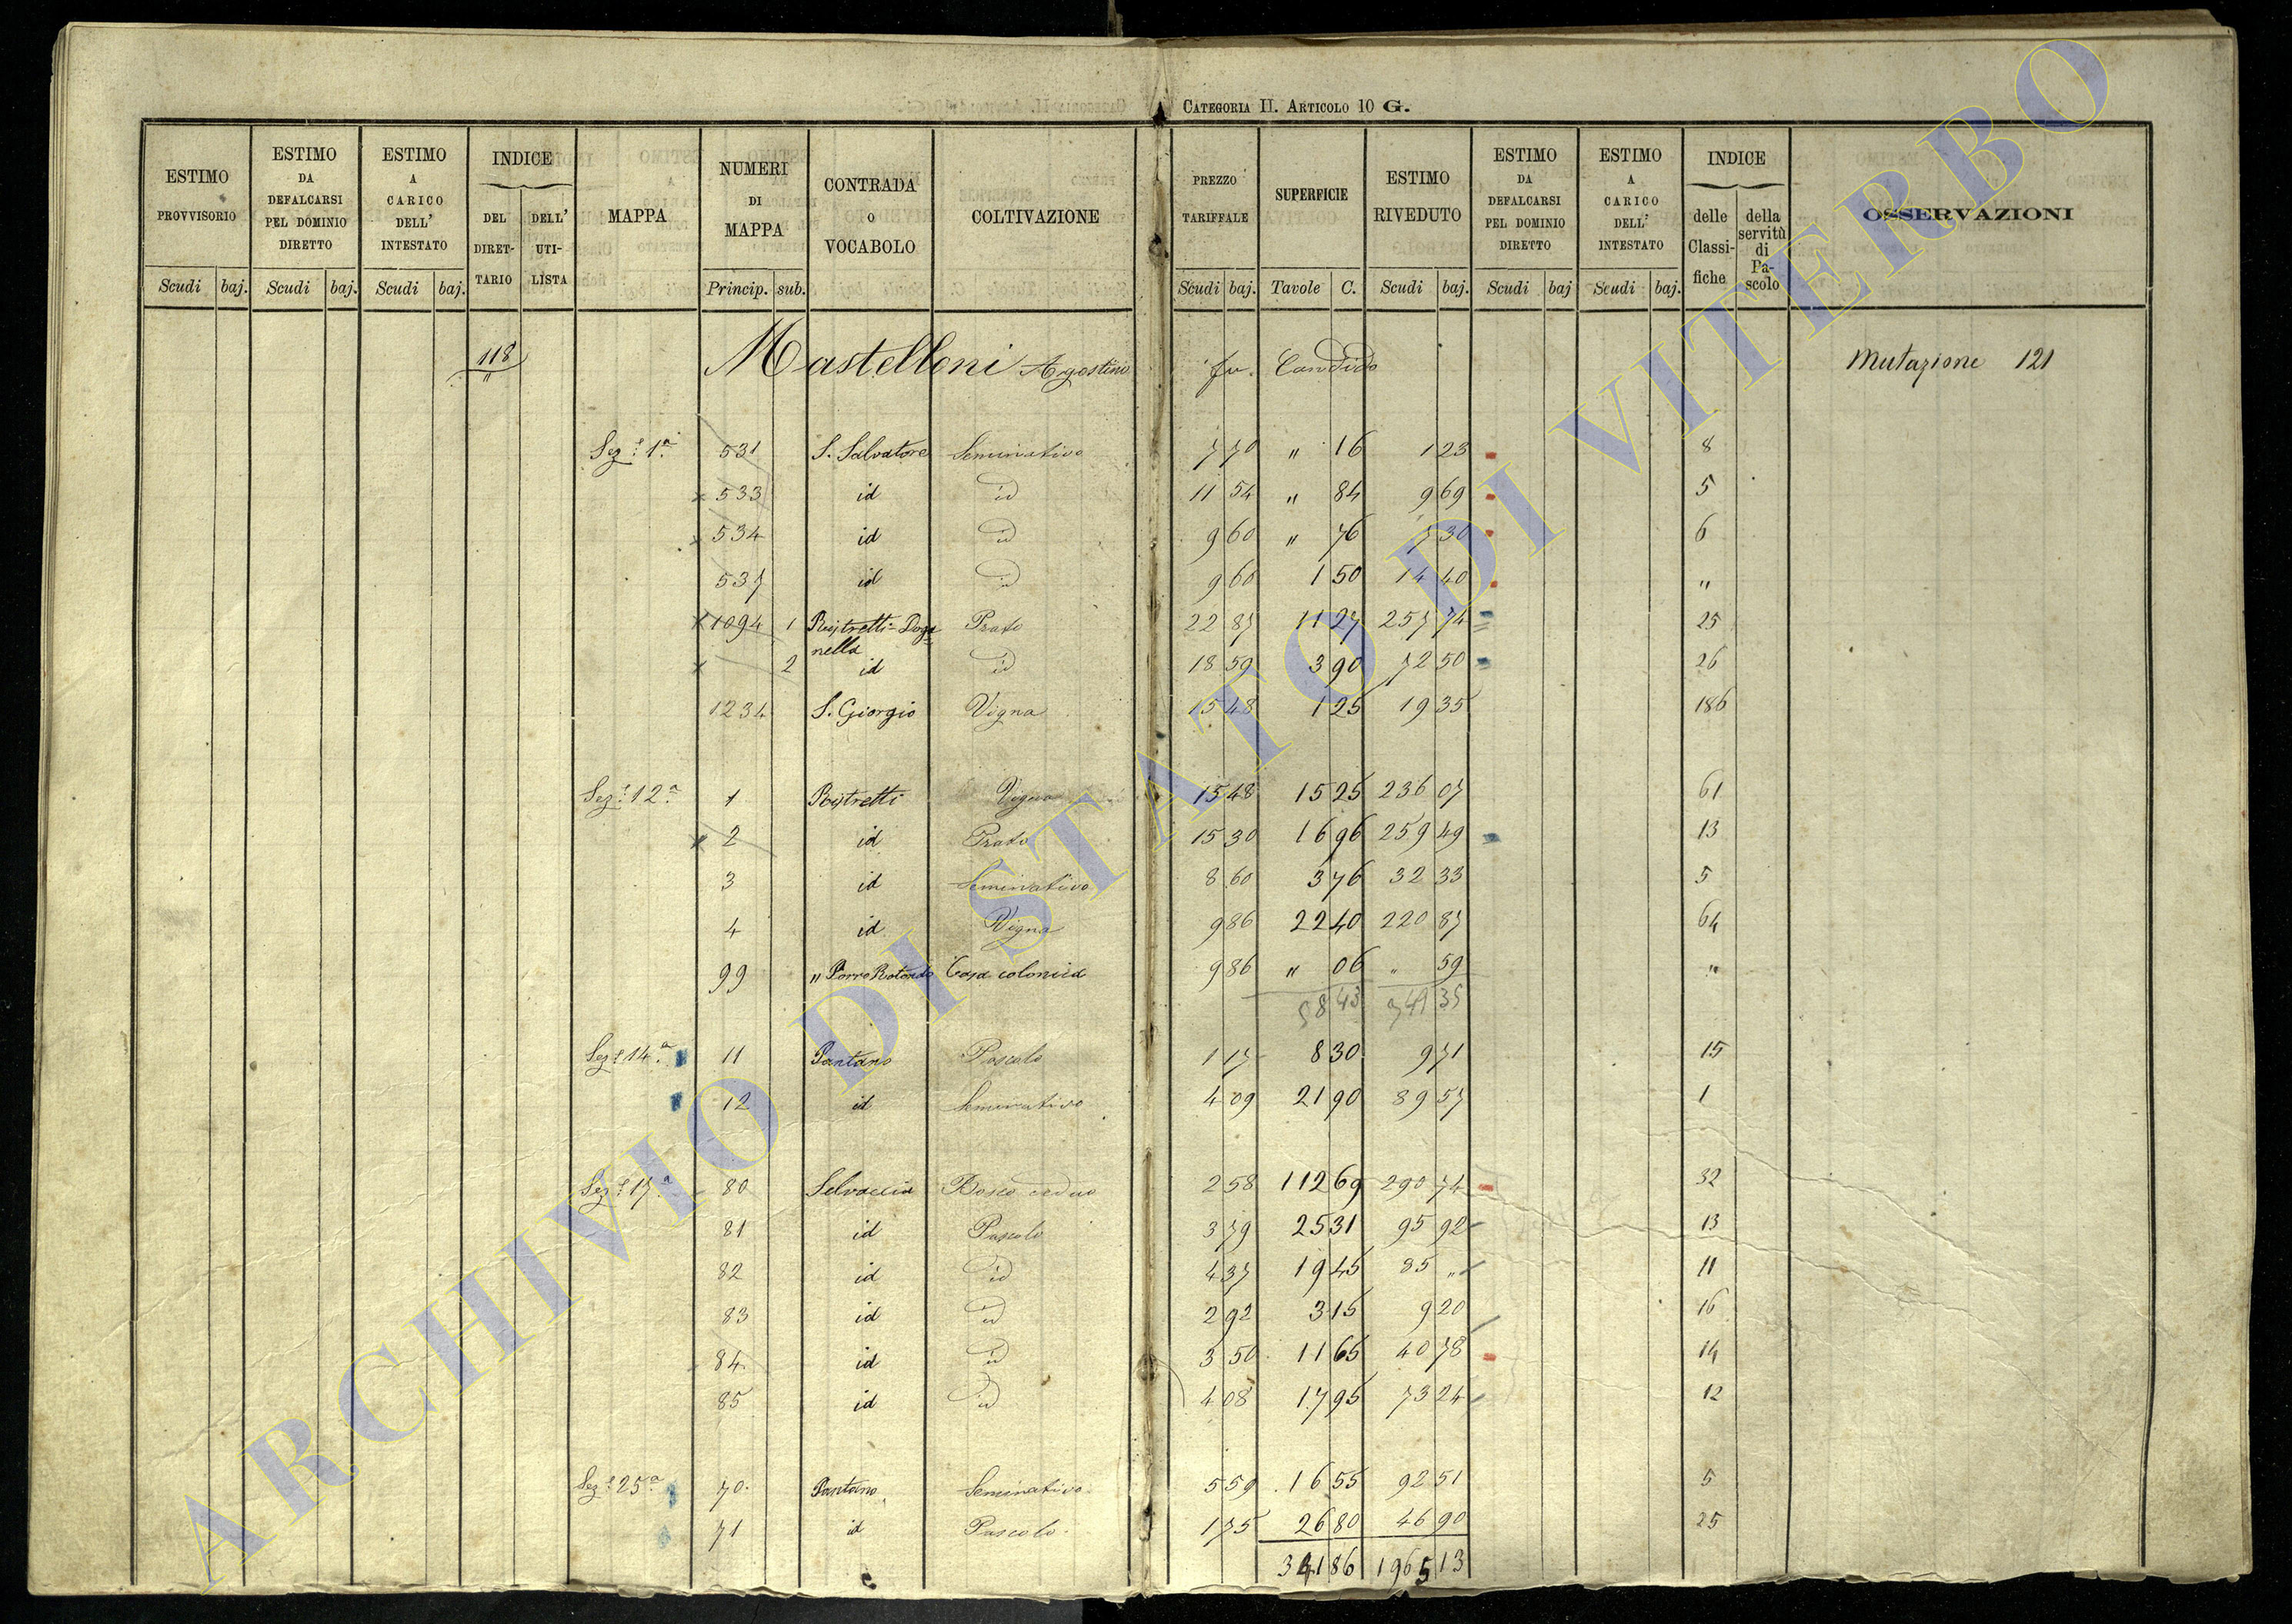 CATEGORIA II. ARTICOLO 10 G.
ESTIMO PROVVISORIO Scudi baj.
ESTIMO DA DEFALCARSI PEL DOMINIO DIRETTO Scudi baj.
ESTIMO A CARICO DELL' INTESTATO Scudi baj.
INDICE DEL DIRETTARIO DELL' UTILISTA
MAPPA
NUMERI DI MAPPA Princip. sub.
CONTRADA O VOCABOLO
COLTIVAZIONE
PREZZO TARIFFALE Scudi baj.
SUPERFICIE Tavole C.
ESTIMO RIVEDUTO Scudi baj.
ESTIMO DA DEFALCARSI PEL DOMINIO DIRETTO Scudi baj
ESTIMO A CARICO DELL' INTESTATO Scudi baj.
INDICE delle Classifiche della servitù di Pascolo
OSSERVAZIONI
118 Mastelloni Agostino fu Candido Mutazione 121
Sez.e 1a 531 S. Salvatore Seminativo 7 70 " 16 1 23 8
533 id id 11 54 " 84 9 69 5
534 id id 9 60 " 76 7 30 6
537 id id 9 60 1 50 14 40 "
1094 1 Ristretti-Doga= Prato 22 87 11 27 257 74 25
nella
2 id id 18 59 3 90 72 50 26
1234 S. Giorgio Vigna 15 48 1 25 19 35 186
Sez.e 12a 1 Ristretti Vigna 15 48 15 25 236 07 61
2 id Prato 15 30 16 96 259 49 13
3 id Seminativo 8 60 3 76 32 33 5
4 id Vigna 9 86 22 40 220 87 64
99 " Porro Rotondo Casa colonica 9 86 " 06 " 59 "
58 43 749 35
Sez.e 14a 11 Pantano Pascolo 1 17 8 30 9 71 15
12 id Seminativo 4 09 21 90 89 57 1
Sez.e 17a 80 Selvaccia Bosco ceduo 2 58 112 69 290 74 32
81 id Pascolo 3 79 25 31 95 92 13
82 id id 4 37 19 45 85 " 11
83 id id 2 92 3 15 9 20 16
84 id id 3 50 11 65 40 78 14
85 id id 4 08 17 95 73 24 12
Sez.e 25a 70 Pantano Seminativo 5 59 16 55 92 51 5
71 id Pascolo 1 75 26 80 46 90 25
341 86 1965 13
ARCHIVIO DI STATO DI VITERBO